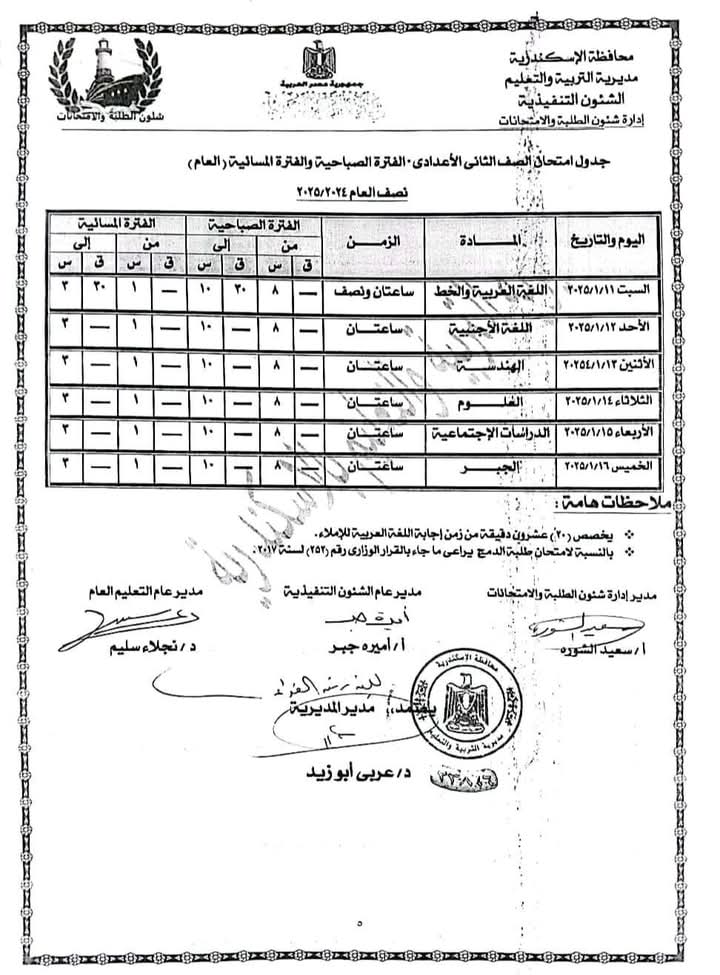 محافظة الإسكندرية
مديرية التربية والتعليم
الشئون التنفيذية
إدارة شئون الطلبة والامتحانات
جمهورية مصر العربية
شئون الطلبة والامتحانات
جدول امتحان الصف الثانى الأعدادى - الفترة الصباحية والفترة المسائية (العام)
نصف العام ٢٠٢٥/٢٠٢٤
اليوم والتاريخ المـــادة الزمـن الفترة الصباحية الفترة المسائية
من إلى من إلى
ق س ق س ق س ق س
السبت ٢٠٢٥/١/١١ اللغة العربية والخط ساعتان ونصف — ٨ ٣٠ ١٠ — ١ ٣٠ ٣
الأحد ٢٠٢٥/١/١٢ اللغة الأجنبية ساعتـــان — ٨ — ١٠ — ١ — ٣
الأثنين ٢٠٢٥٤/١/١٣ الهندســـة ساعتـــان — ٨ — ١٠ — ١ — ٣
الثلاثاء ٢٠٢٥/١/١٤ العلـــوم ساعتـــان — ٨ — ١٠ — ١ — ٣
الأربعاء ٢٠٢٥/١/١٥ الدراسات الإجتماعية ساعتـــان — ٨ — ١٠ — ١ — ٣
الخميس ٢٠٢٥/١/١٦ الجبـــر ساعتـــان — ٨ — ١٠ — ١ — ٣
ملاحظات هامة :
❖ يخصص (٢٠) عشرون دقيقة من زمن إجابة اللغة العربية للإملاء.
❖ بالنسبة لامتحان طلبة الدمج يراعى ما جاء بالقرار الوزارى رقم (٢٥٢) لسنة ٢٠١٧.
مدير إدارة شئون الطلبة والامتحانات مدير عام الشئون التنفيذية مدير عام التعليم العام
أ/ سعيد الشوره أ/ أميره جبر د/ نجلاء سليم
يعتمد،، مدير المديرية
د/ عربى أبو زيد
محافظة الإسكندرية
مديرية التربية والتعليم
٥